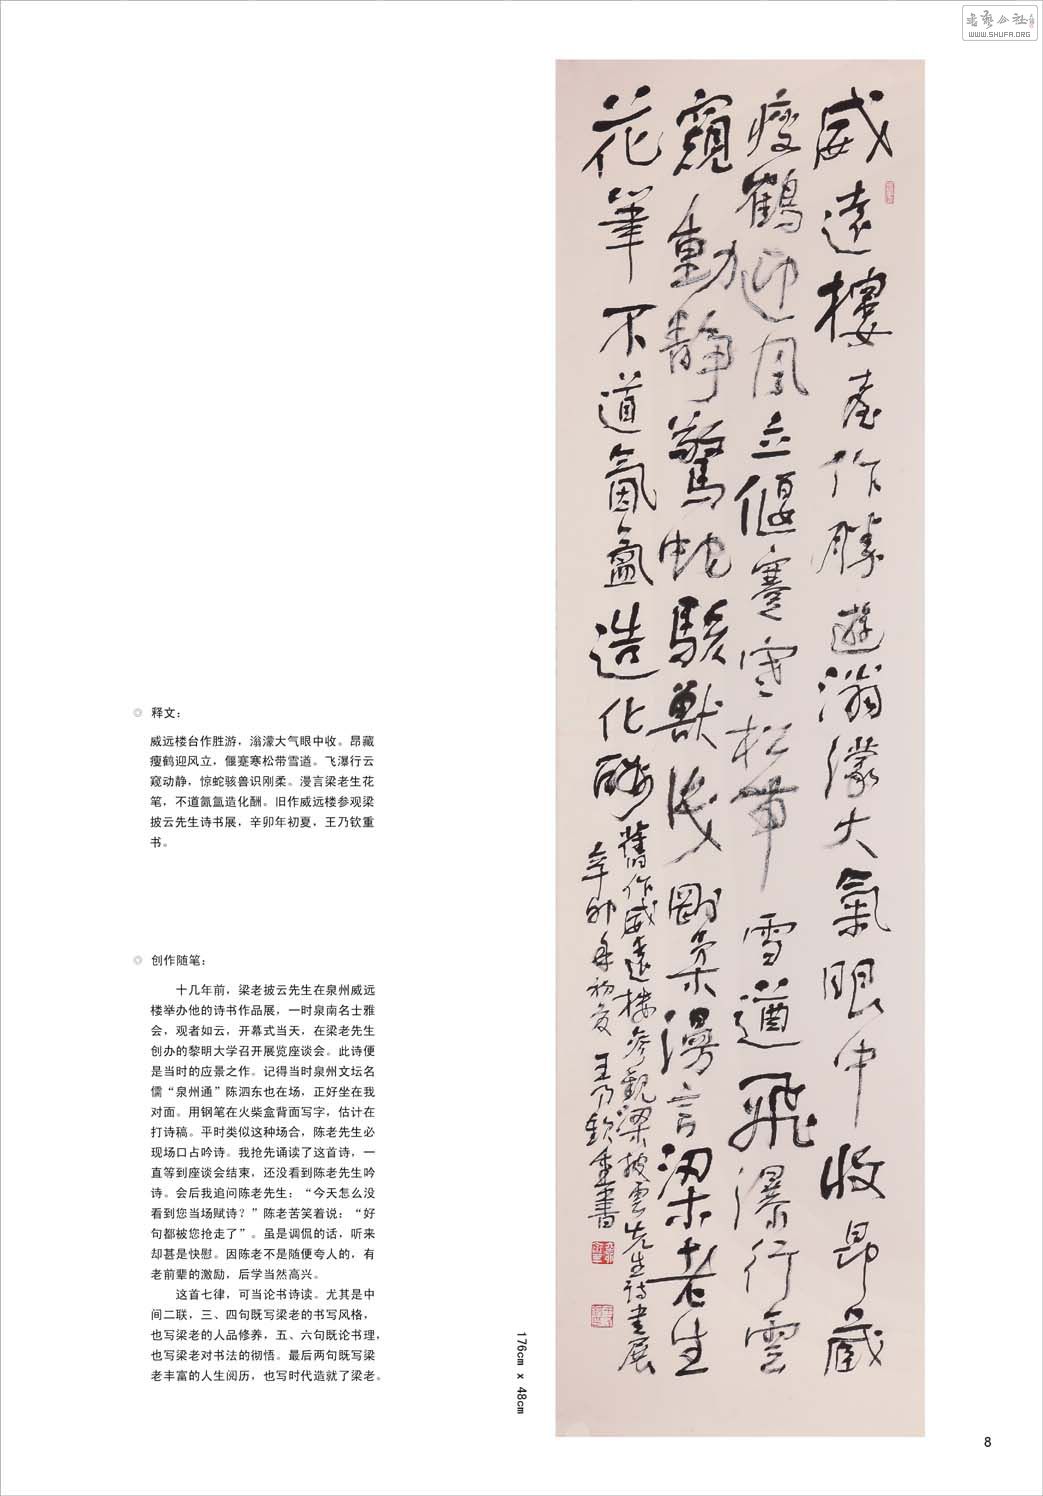 书艺公社
WWW.SHUFA.ORG
威遠樓臺作勝遊滃濛大氣眼中收昂藏
瘦鶴迎風立偃蹇寒松帶雪遒飛瀑行雲
窺動靜驚蛇駭獸識剛柔漫言梁老生
花筆不道氤氳造化酬舊作威遠樓參觀梁披雲先生詩書展
辛卯年初夏王乃欽重書
释文:
威远楼台作胜游，滃濛大气眼中收。昂藏
瘦鹤迎风立，偃蹇寒松带雪道。飞瀑行云
窥动静，惊蛇骇兽识刚柔。漫言梁老生花
笔，不道氤氲造化酬。旧作威远楼参观梁
披云先生诗书展，辛卯年初夏，王乃钦重
书。
创作随笔:
十几年前，梁老披云先生在泉州威远
楼举办他的诗书作品展，一时泉南名士雅
会，观者如云，开幕式当天，在梁老先生
创办的黎明大学召开展览座谈会。此诗便
是当时的应景之作。记得当时泉州文坛名
儒“泉州通”陈泗东也在场，正好坐在我
对面。用钢笔在火柴盒背面写字，估计在
打诗稿。平时类似这种场合，陈老先生必
现场口占吟诗。我抢先诵读了这首诗，一
直等到座谈会结束，还没看到陈老先生吟
诗。会后我追问陈老先生：“今天怎么没
看到您当场赋诗？”陈老苦笑着说：“好
句都被您抢走了”。虽是调侃的话，听来
却甚是快慰。因陈老不是随便夸人的，有
老前辈的激励，后学当然高兴。
这首七律，可当论书诗读。尤其是中
间二联，三、四句既写梁老的书写风格，
也写梁老的人品修养，五、六句既论书理，
也写梁老对书法的彻悟。最后两句既写梁
老丰富的人生阅历，也写时代造就了梁老。
176cm x 48cm
8